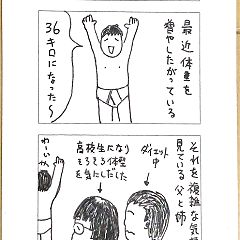 最近体重を
増やしたがっている
36
キロになった〜
それを複雑な気
見ている父と姉
ダイエット
中
高校生になり
体型
気にしだした
わーい